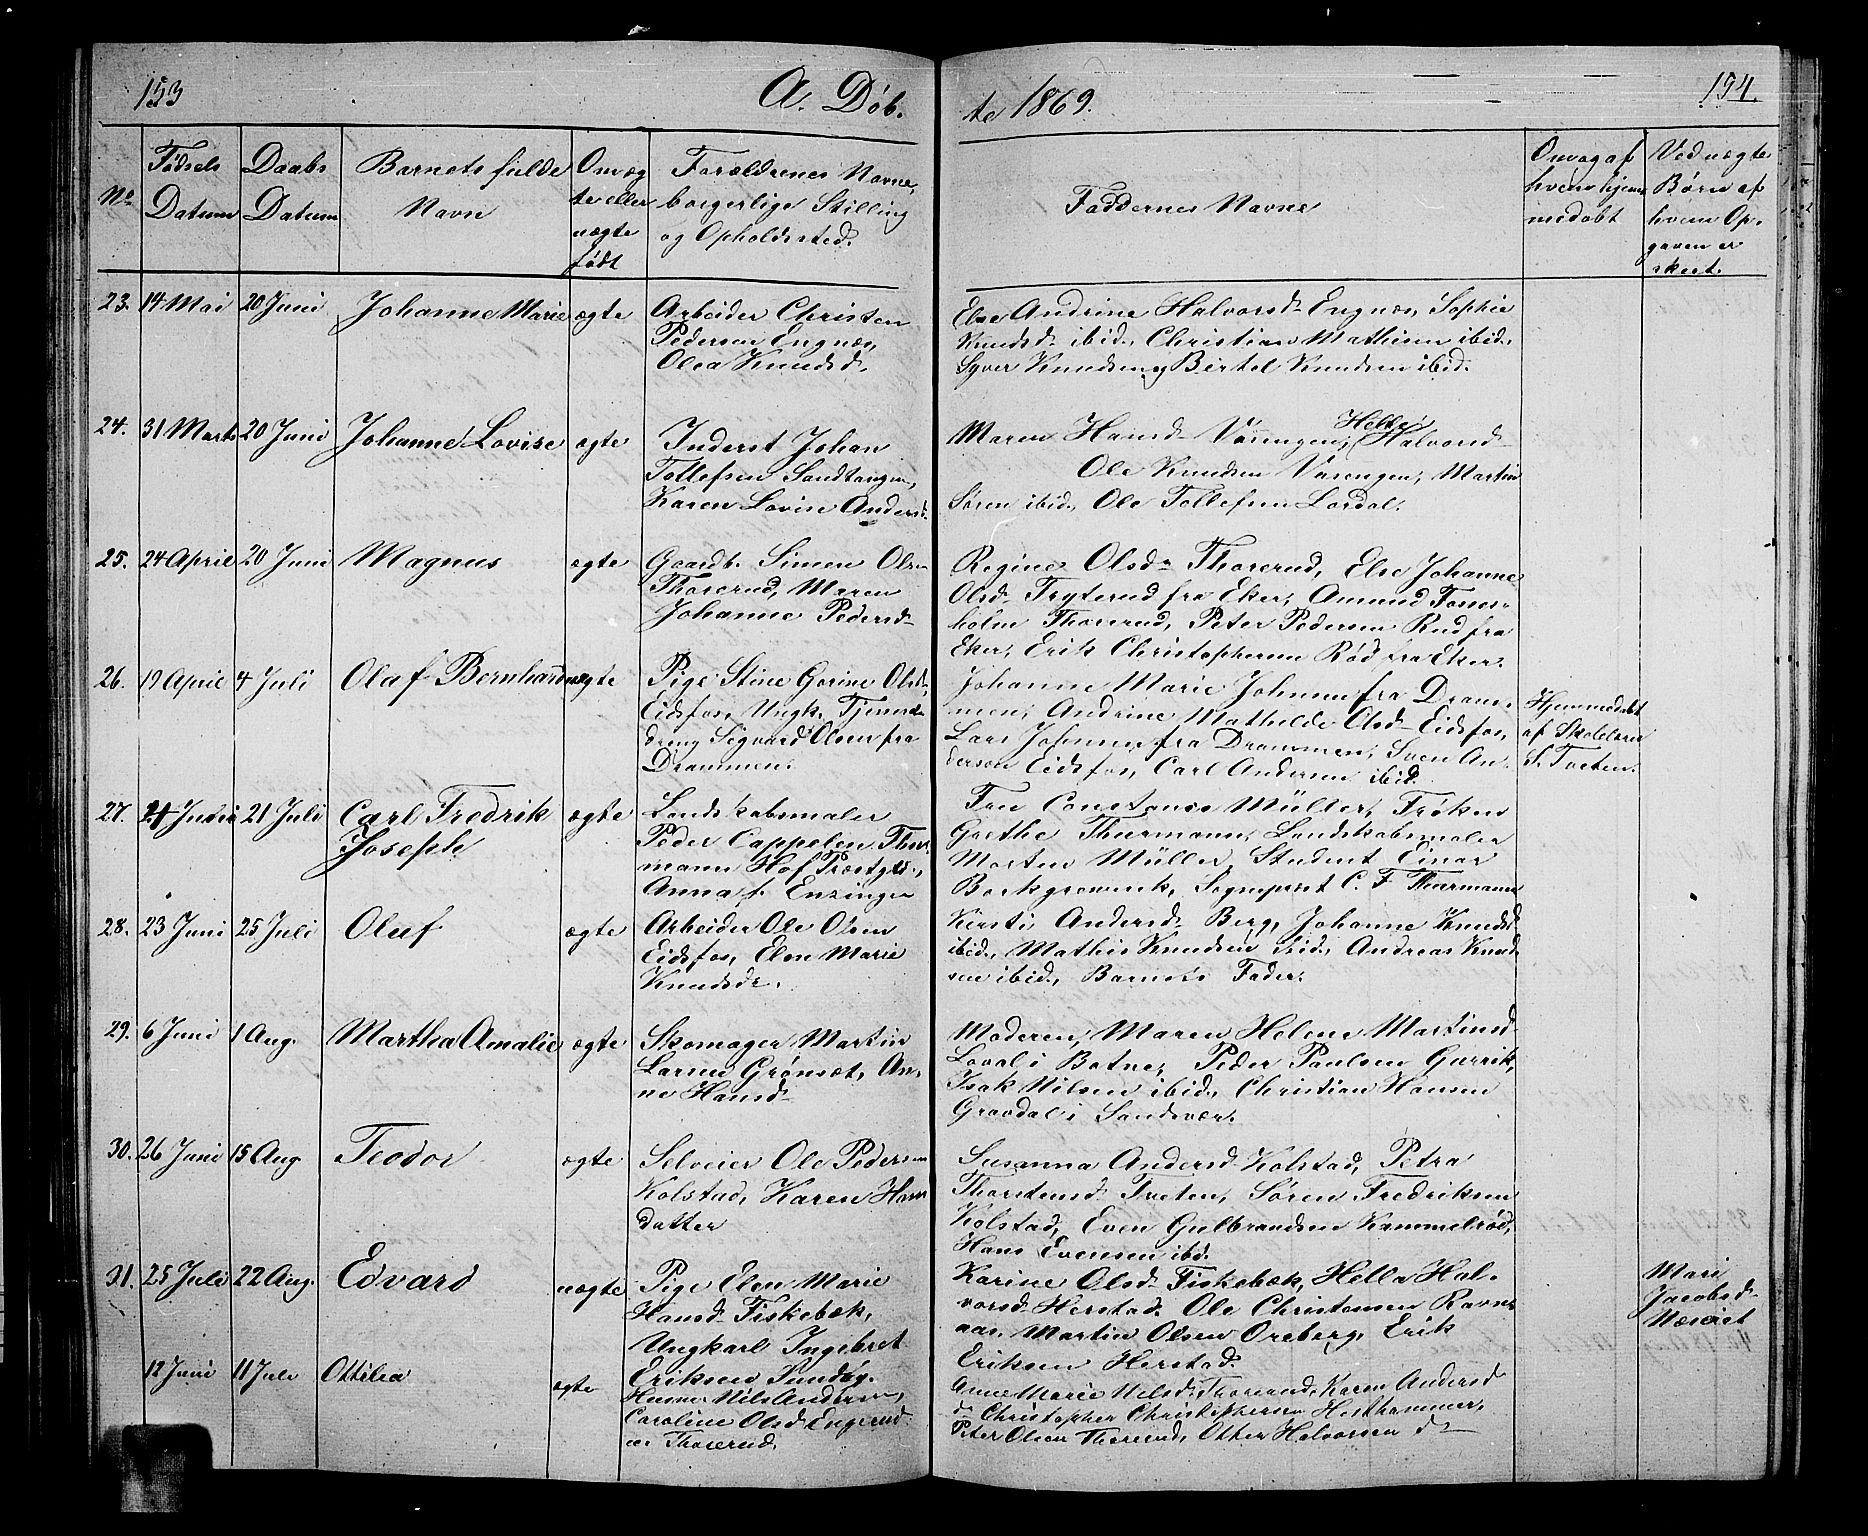 153
A. Døb.
te 1869.
154.
No
Fødsels Datum
Daabs Datum
Barnets fulde Navn
Om æg
te eller
uægte
født
Forældrenes Navne,
borgerlige Stilling
og Opholdssted.
Faddernes Navne
Om og af
hvem hjem
medøbt
Ved uægte
Børn af
hvem Op-
gaven er
skeet.
23. 14 Mai 20 Juni Johanne Marie ægte
Arbeider Christen
Pedersen Engnæs,
Olea Knudsd.
Else Andrine Halvorsd. Engnæs, Sophie
Knudsd. ibid., Christian Mathisen ibid.,
Syver Knudsen og Bertel Knudsen ibid.
24. 31 Marts 20 Juni Johanne Lovise ægte
Inderst Johan
Tollefsen Sandtangen,
Karen Lovise Andersd.
Maren Hansd. Vørengen, Helle Halvorsd.
Ole Knudsen Vørengen, Martin
Søren ibid., Ole Tollefsen Lordal.
25. 24 April 20 Juni Magnus ægte
Gaardb. Simen Olsen
Thorerud, Maren
Johanne Pedersd.
Regine Olsd. Thorerud, Else Johanne
Olsd. Fryterud fra Eker, Amund Tones-
holm Thorerud, Peter Pedersen Rud fra
Eker, Erik Christophersen Rød fra Eker.
26. 19 April 4 Juli Olaf Bernhard uægte
Pige Stine Gorine Olsd.
Eidsfos, Ungk. Tjeneste-
dreng Sigvard Olsen fra
Drammen.
Johanne Marie Johnsen fra Dram-
men, Andrine Mathilde Olsd. Eidsfos,
Lars Johnsen fra Drammen, Sven An-
derson Eidsfos, Carl Andersen ibid.
Hjemmedøbt
af Skolelærer
S. Tveten.
27. 21 Juni 21 Juli Carl Fredrik
Joseph ægte
Landskabsmaler
Peder Cappelen Thur
mann Hof Præstgrd.,
Anna f. Enzinger
Fru Constance Müller, Frøken
Grethe Thurmann, Landskabsmaler
Morten Müller, Student Einar
Borkgrevenik, Sognepræst C. F. Thurmann
28. 23 Juni 25 Juli Oluf ægte
Arbeider Ole Olsen
Eidsfos, Elen Marie
Knudsdr.
Kirsti Andersd. Berg, Johanne Knudsd.
ibid., Mathis Knudsen ibid., Andreas Knud
sen ibid., Barnets Fader.
29. 6 Juni 1 Aug. Martha Amalie ægte
Skomager Martin
Larsen Grønsæt, An-
ne Hansd.
Moderen, Maren Helene Martinsd.
Loval i Botne, Peder Paulsen Gurrik,
Isak Nilsen ibid., Christian Hansen
Gravdal i Sandsvær.
30. 26 Juni 15 Aug. Teodor ægte
Selveier Ole Pedersen
Kolstad, Karen Hans
datter
Susanna Andersd. Kolstad, Petra
Thorstensd. Tveten, Søren Fredriksen
Kolstad, Even Gulbrandsen Kammelrød,
Hans Evensen ibd.
31. 25 Juli 22 Aug. Edvard uægte
Pige Elen Marie
Hansd. Fiskebæk,
Ungkarl Ingebret
Eriksen Sundby.
Karine Olsd. Fiskebæk, Hella Hal-
vorsd. Herstad, Ole Christensen Ravn-
aas, Martin Olsen Oreberg, Erik
Eriksen Herstad.
Mari
Jacobsd.
12 Juni 11 Juli Ottilia ægte
Husm. Nils Andersen,
Caroline Olsd. Engerud
Thorerud,
Anne Marie Nilsd. Thorerud, Karen Andersd
d. Christopher Christophersen Hesthammer,
Peter Olsen Thorerud, Otter Halvorsen d-